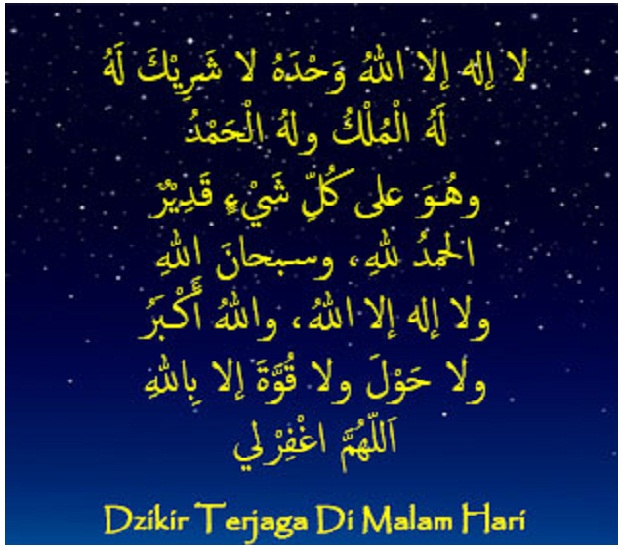 لا إله إلا اللهُ وَحْدَهُ لا شَرِيْكَ لَهُ
لَهُ الْمُلْكُ ولهُ الْحَمْدُ
وهُوَ على كُلِّ شَيْءٍ قَدِيْرٌ
الحمدُ للهِ، وسبحانَ اللهِ
ولا إله إلا اللهُ، واللهُ أَكْبَرُ
ولا حَوْلَ ولا قُوَّةَ إلا بِاللهِ
اَللّهُمَّ اغْفِرْ لي
Dzikir Terjaga Di Malam Hari